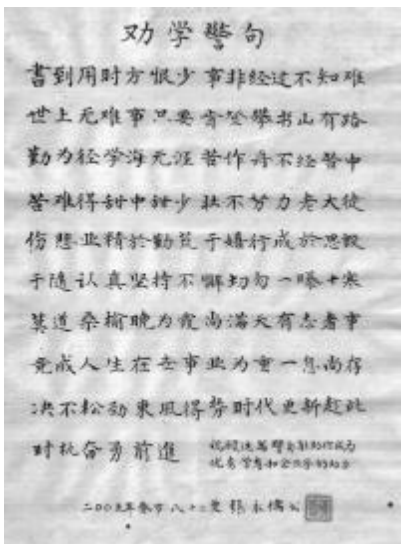 劝学警句
書到用时方恨少事非经过不知难
世上无难事只要肯登攀书山有路
勤为径学海无涯苦作舟不经苦中
苦难得甜中甜少壮不努力老大徒
伤悲业精於勤荒于嬉行成於思毁
于随认真坚持不懈切勿一曝十寒
莫道桑榆晚为霞尚满天有志者事
竟成人生在世事业为重一息尚存
决不松劲東風得势时代更新趁此
时机奋勇前進
二00五年 八十二叟